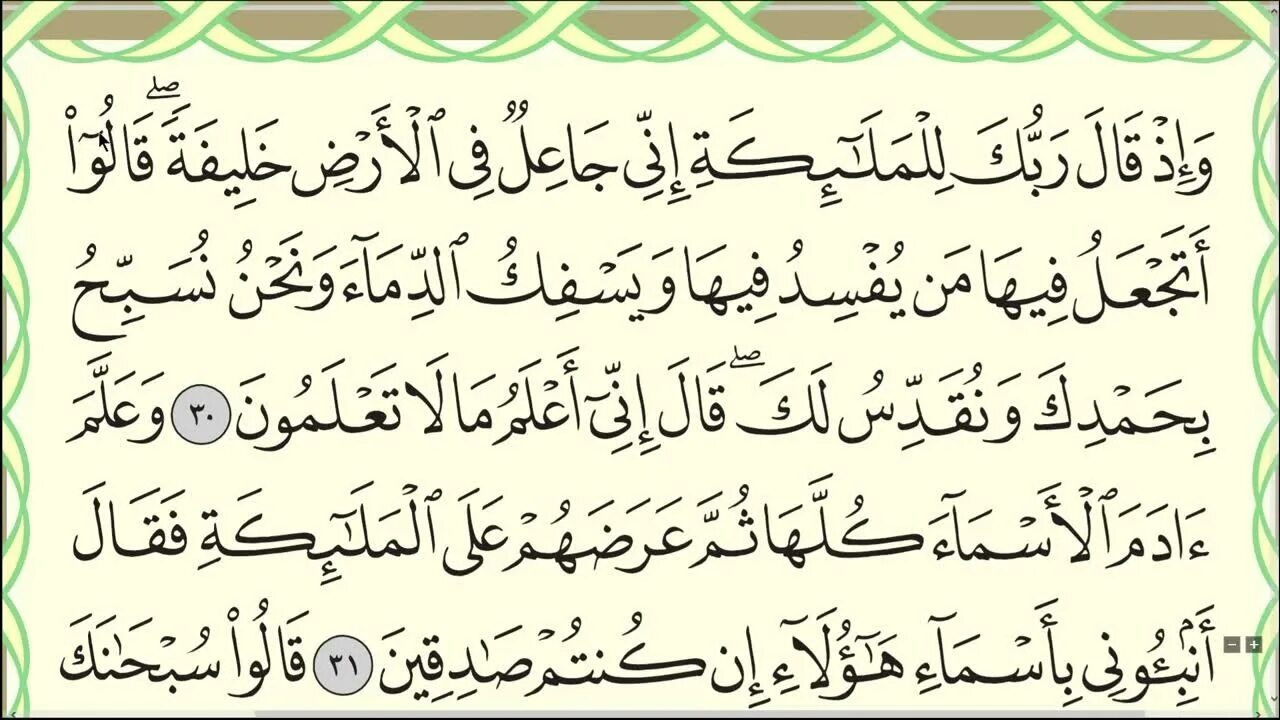 وَإِذْ قَالَ رَبُّكَ لِلْمَلَـٰٓئِكَةِ إِنِّى جَاعِلٌ فِى ٱلْأَرْضِ خَلِيفَةً ۖ قَالُوٓا۟
أَتَجْعَلُ فِيهَا مَن يُفْسِدُ فِيهَا وَيَسْفِكُ ٱلدِّمَآءَ وَنَحْنُ نُسَبِّحُ
بِحَمْدِكَ وَنُقَدِّسُ لَكَ ۖ قَالَ إِنِّىٓ أَعْلَمُ مَا لَا تَعْلَمُونَ ٣٠ وَعَلَّمَ
ءَادَمَ ٱلْأَسْمَآءَ كُلَّهَا ثُمَّ عَرَضَهُمْ عَلَى ٱلْمَلَـٰٓئِكَةِ فَقَالَ
أَنۢبِـُٔونِى بِأَسْمَآءِ هَـٰٓؤُلَآءِ إِن كُنتُمْ صَـٰدِقِينَ ٣١ قَالُوا۟ سُبْحَـٰنَكَ